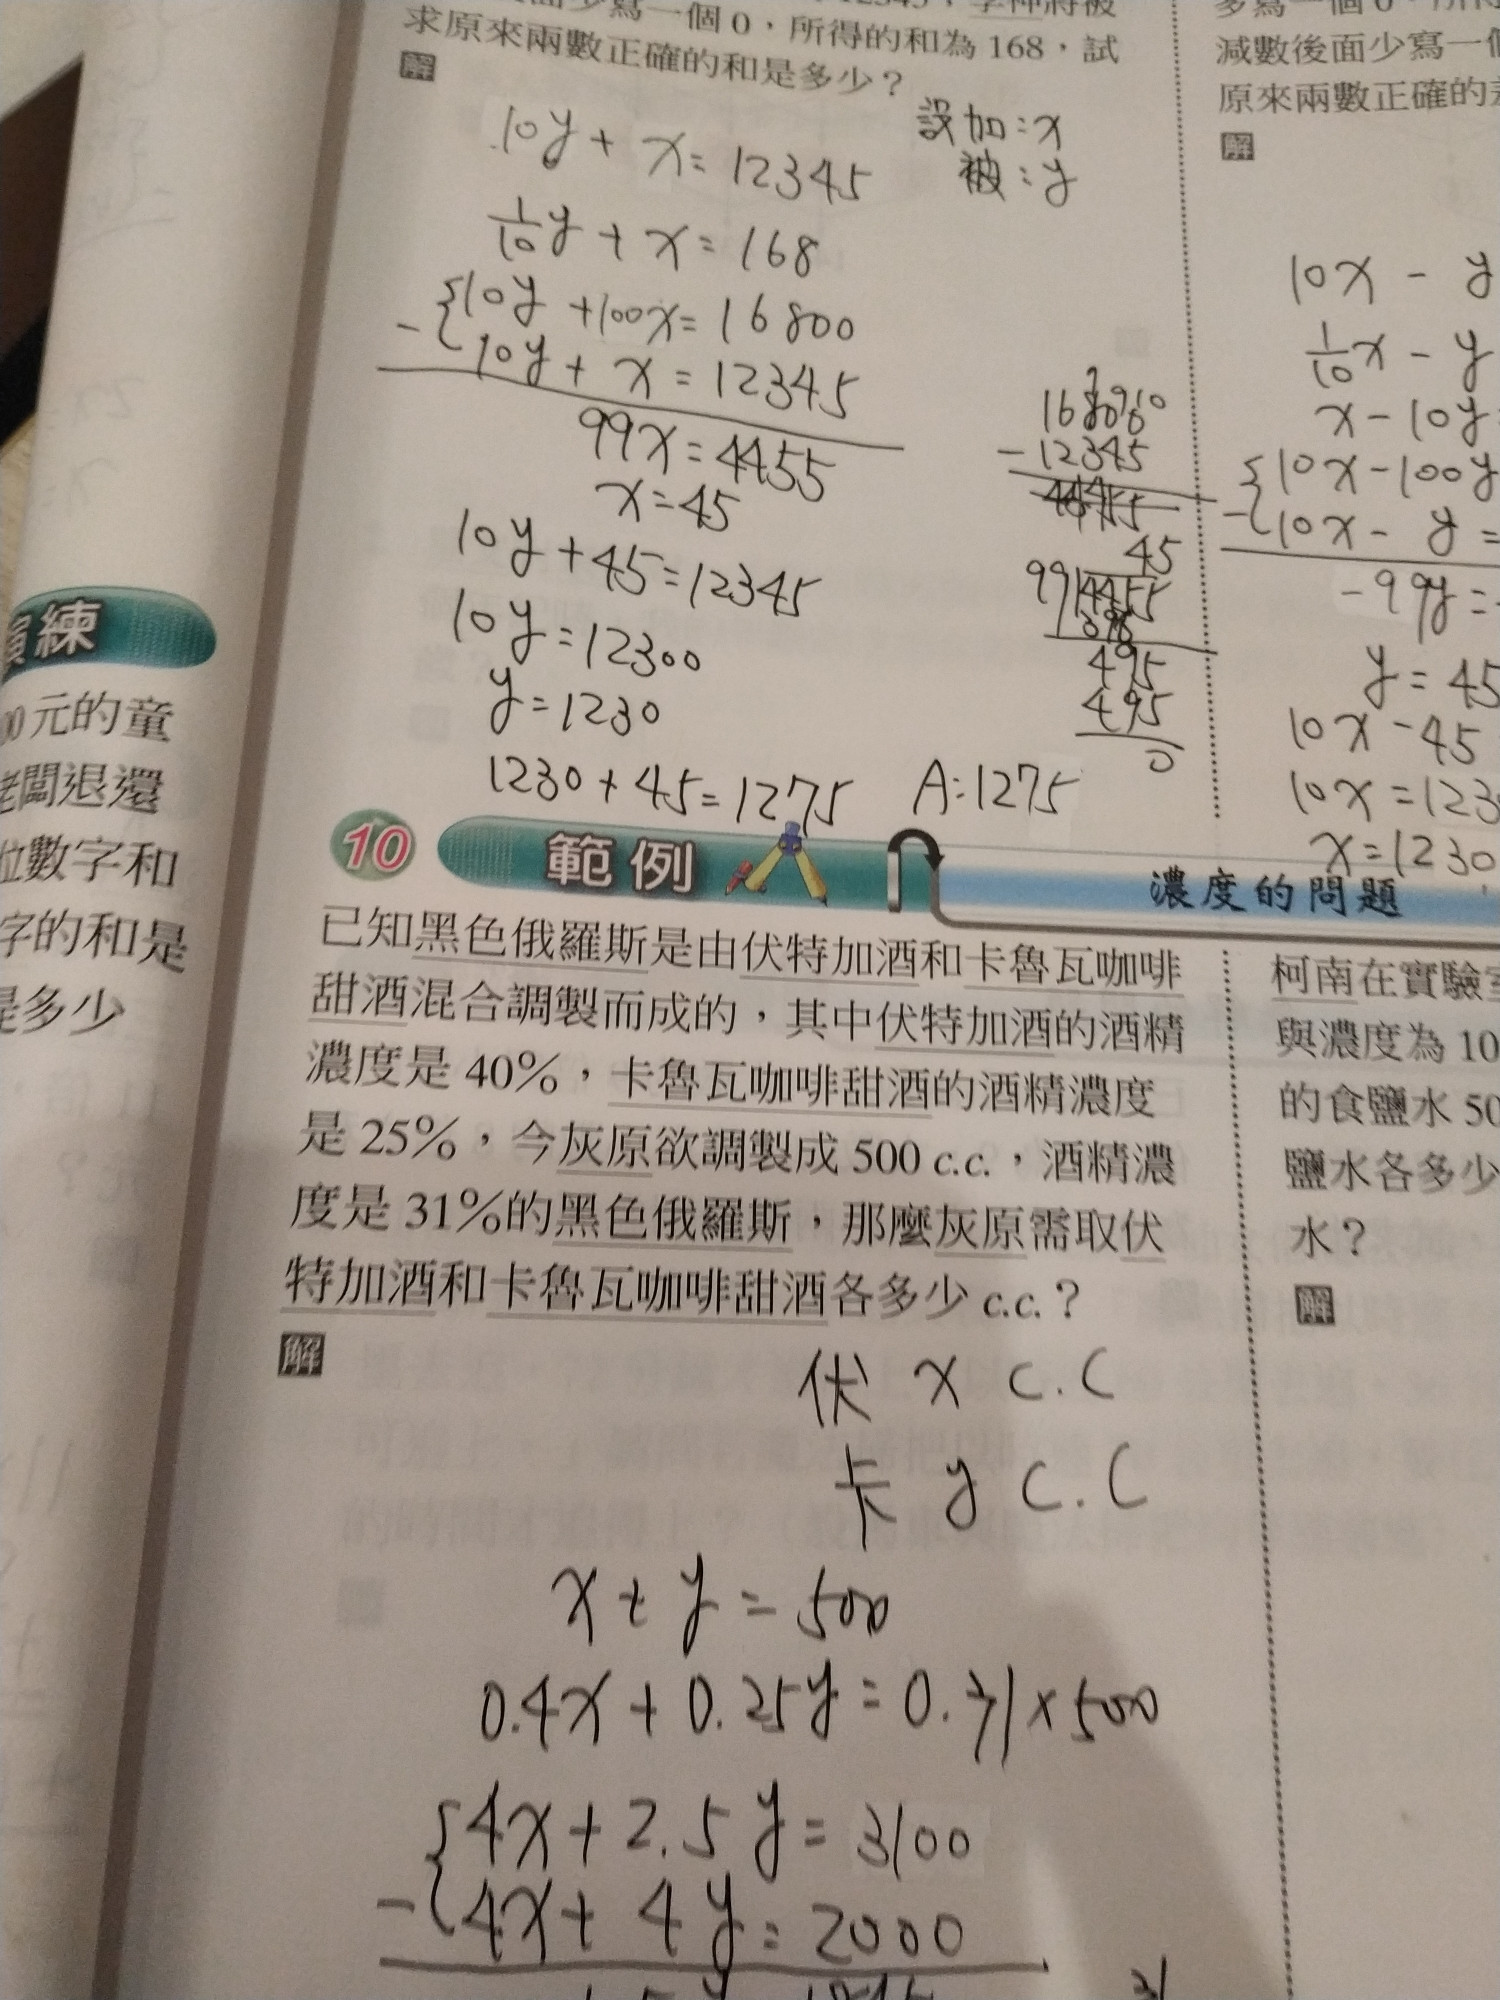 求原來兩數正確的和是多少？
解
設加：x
被：y
10y + x = 12345
1/10 y + x = 168
{10y + 100x = 16800
-{10y + x = 12345
99x = 4455
x = 45
10y + 45 = 12345
10y = 12300
y = 1230
1230 + 45 = 1275 A：1275
- 12345
45
99 4455
495
495
0
減數後面少寫一個
原來兩數正確的
解
10x - y
1/10 x - y
x - 10y
{10x - 100y
-{10x - y =
-99y =
y = 45
10x - 45
10x = 123
x = 1230
練
元的童
老闆退還
位數字和
字的和是
是多少
10 範例 濃度的問題
已知黑色俄羅斯是由伏特加酒和卡魯瓦咖啡
甜酒混合調製而成的，其中伏特加酒的酒精
濃度是 40%，卡魯瓦咖啡甜酒的酒精濃度
是 25%，今灰原欲調製成 500 c.c.，酒精濃
度是 31%的黑色俄羅斯，那麼灰原需取伏
特加酒和卡魯瓦咖啡甜酒各多少 c.c.？
解
伏 x c.c
卡 y c.c
x + y = 500
0.4x + 0.25y = 0.31 x 500
{4x + 2.5y = 3100
-{4x + 4y = 2000
柯南在實驗室
與濃度為 10
的食鹽水 50
鹽水各多少
水？
解